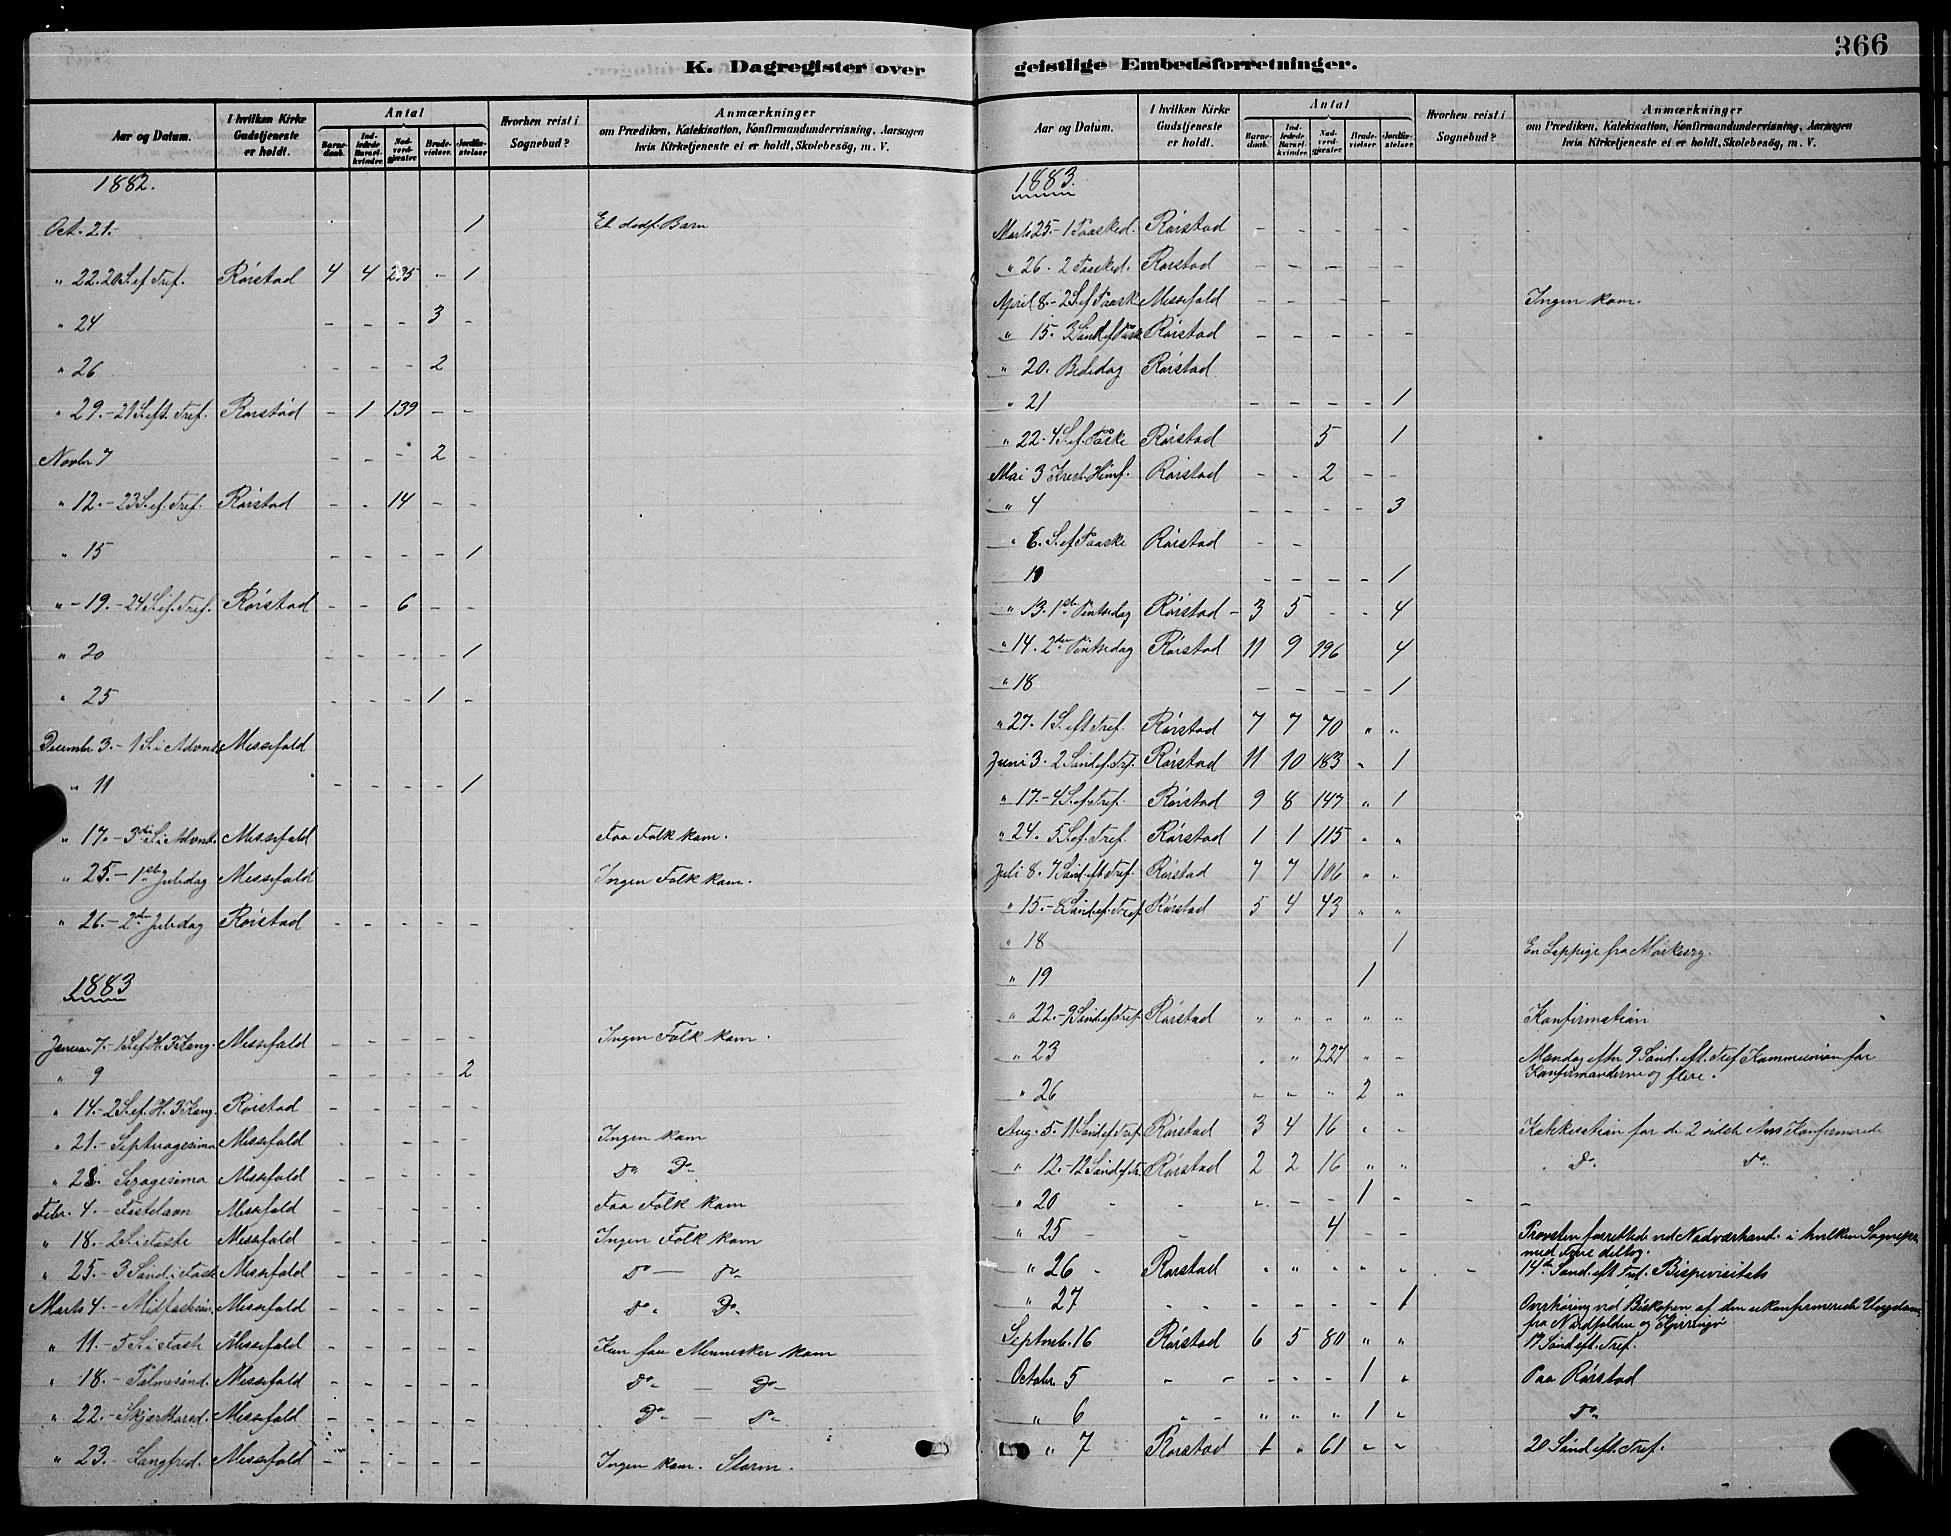 366
K. Dagregister over
Aar og Datum. | I hvilken Kirke Gudstjeneste er holdt. | Antal | Barnedaab. | Indledede Barselkvinder. | Nadverdgjester. | Brudevielser. | Jordfæstelser | Hvorhen reist i Sognebud? | Anmærkninger om Prædiken, Katekisation, Konfirmandundervisning, Aarsagen hvis Kirketjeneste ei er holdt, Skolebesög, m. V.
1882.
Oct. 21. 1 Et dødf. Barn
" 22. 20 S. ef Tref. Rørstad 4 4 235 - 1
" 24 - - - 3 -
" 26 - - - 2
" 29. - 21 S. eft. Tref. Rørstad - 1 139 - -
Novbr 7 - - - 2 -
" 12. - 23 S. ef. Tref. Rørstad - - 14 - -
" 15 - - - - 1
" - 19. - 24 S. ef. Tref. Rørstad - - 6 - -
" 20 - - - - 1
" 25 - - - 1 -
Decembr. 3. - 1 S. i Advent Messefold
" 11 - - - - 1
" 17. - 3die S. i Advent. Messefold Faa Folk kom.
" 25. - 1ste Juledag Messefold Ingen Folk kom.
" 26. - 2den Juledag Rørstad - - - - -
1883
Januar 7. - 1 S. ef. H. 3 Kong. Messefold - - - - - Ingen Folk kom.
" 9 - - - - 2
" 14. - 2 S. ef. H. 3 Kong. Rørstad - - - - -
" 21. - Septuagesima Messefold - - - - - Ingen kom
" 28. Sexagesima Messefold - - - - - Do Do
Febr. 4. - Fastelavn Messefold - - - - - Faa Folk kom
" 18. - 2 S. i Faste Messefold - - - - - Ingen Folk kom
" 25. - 3 Sønd. i Fast Messefold - - - - - Do - Do
Marts 4. - Midfastesøn. Messefold - - - - - Do Do
" 11. - 5 S. i Fast Messefold - - - - - Kun faa Mennesker kom
" 18. - Palmesønd. Messefold - - - - - Do - Do
" 22. - Skjærthorsd. Messefold - - - - - Do - Do
" 23. - Langfred. Messefold - - - - - Ingen kom. Storm.
geistlige Embedsforretninger.
Aar og Datum. | I hvilken Kirke Gudstjeneste er holdt. | Antal | Barnedaab. | Indledede Barselkvinder. | Nadverdgjester. | Brudevielser | Jordfæstelser. | Hvorhen reist i Sognebud? | Anmærkninger om Prædiken, Katekisation, Konfirmandundervisning, Aarsagen hvis Kirketjeneste ei er holdt, Skolebesög, m. V.
1883.
Marts 25. - 1 Paasked. Rørstad - - - - -
" 26. 2 Paasked. Rørstad - - - - -
April 8. - 2 S. ef Paask Messefold - - - - - Ingen kom.
" 15. 3 Sønd. ef Paask Rørstad - - - - -
" 20. Bededag Rørstad
" 21 - - - - 1
" 22. 4 S. ef. Paaske Rørstad 5 1
Mai 3 Krist. Himf. Rørstad - - 2 - -
" 4 - - - - 3
" 6. S. ef Paaske Rørstad - -
10 - - - - 1
" 13. 1ste Pintsedag Rørstad - 3 5 - - 4
" 14. 2den Pintsedag Rørstad 11 9 196 4
" 18 - - - - 1
" 27. 1 S. eft Tref. Rørstad 7 7 70 " "
Juni 3. 2 Sønd ef. Tref. Rørstad 11 10 183 " 1
" 17. - 4 S. ef. Tref. Rørstad 9 8 147 " 1
" 24. 5 S. ef. Tref. Rørstad 1 1 115 " "
Juli 8. 7 Sønd. eft Tref. Rørstad 7 7 106 " "
" 15. - 8 Sønd. ef. Tref Rørstad 5 4 43 " "
" 18 1 En Lappige fra Mørkesvg.
" 19 1
" 22. - 9 Sønd. ef Tref. Rørstad " " " " " Konfirmation
" 23 " " 227 " - Mandag efter 9 Sønd. eft. Tref Kommunion for
Konfirmanderne og flere.
" 26 " " " 2 "
Aug. 5. 11 Sønd. ef Tref. Rørstad 3 4 16 " " Katekisation for de 2 sidste Aars Konfirmerede
" 12. - 12 Sønd. ef Tr. Rørstad 2 2 16 " " Do Do
" 20 - - - 1 -
" 25 4 - - Provsten forrettede ved Nadverhand. i hvilken Sognepr.
med Frue deltog.
" 26 Rørstad " " " " " 14de Sønd. eft Tref. Bispevisitats
" 27 - - - - 1 Overhøring ved Biskopen af den ukonfirmerede Ungdom
fra Nordfolden og Kjerringø
Septmb. 16 Rørstad 6 5 80 " " 17 Sønd eft. Tref.
Octobr 5 - - - 1 " Paa Rørstad
" 6 " " " 1 " Do
" 7 Rørstad 1 " 61 " " 20 Sønd eft. Tref.